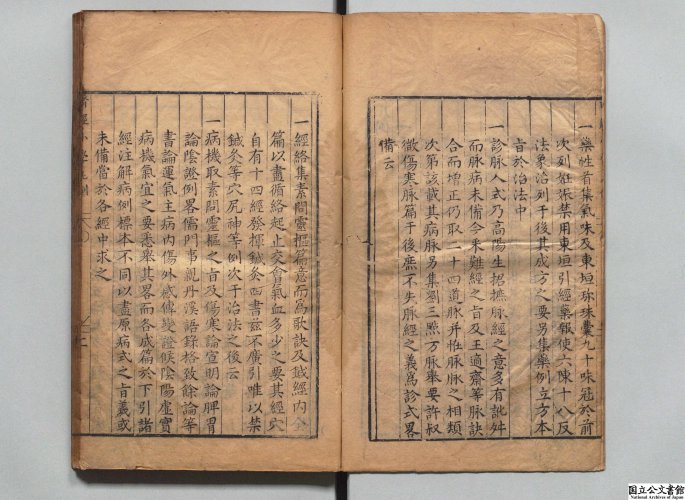 一藥性首集氣味及東垣珍珠囊九十味冠於前
次列妊娠禁用東垣引經藥報使六陳十八反
法象治列于後其成方之要另集藥例立方本
旨於治法中
一診脉入式乃高陽生捃摭脉經之意多有訛舛
而脉病未備今采難經之旨及王適齋等脉訣
合而增正仍取二十四道脉并脉脉之相類
次第該載其病脉另集劉三點方脉舉要許叔
微傷寒脉篇于後庶不失脉經之義爲診式畧
備云
一經絡集素問靈樞篇意而爲歌訣及鍼經内全
篇以盡循絡起止交會氣血多少之要其經穴
自有十四經發揮鍼灸四書玆不廣引唯以禁
鍼灸等穴尻神等例次于治法之後云
一病機取素問靈樞之旨及傷寒論宣明論脾胃
論陰證例畧儒門事親丹溪語錄格致餘論等
書論運氣主病内傷外感傳變證候陰陽虛實
病機氣宜之要悉舉其畧而各成篇於下引諸
經注解病例標本不同以盡原病式之旨義或
未備當於各經中求之
国立公文書館
National Archives of Japan